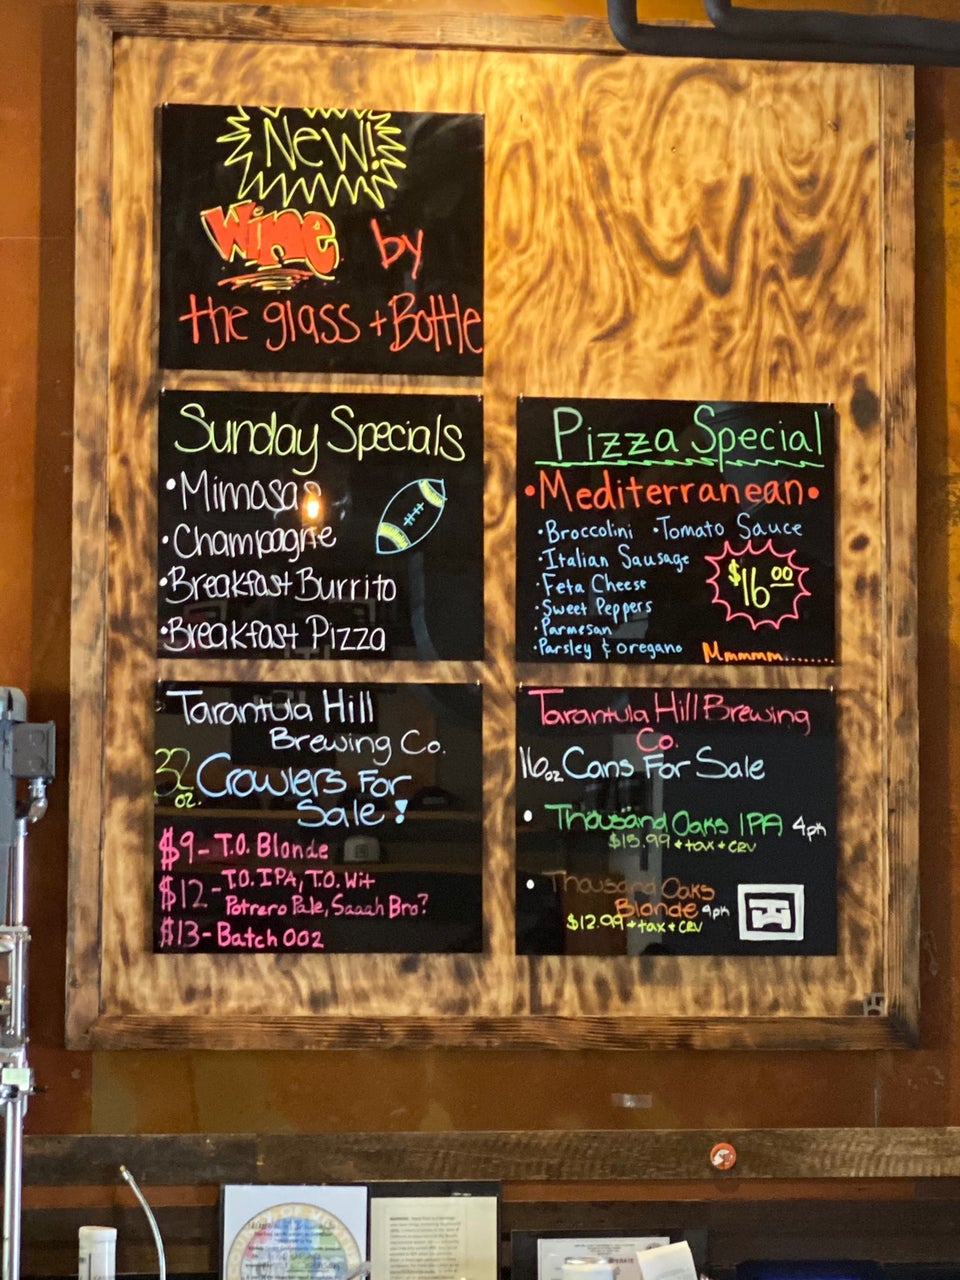 New!
Wine by
the glass + Bottle
Sunday Specials
• Mimosas
• Champagne
• Breakfast Burrito
• Breakfast Pizza
Pizza Special
• Mediterranean •
• Broccolini • Tomato Sauce
• Italian Sausage
• Feta Cheese
$16.00
• Sweet Peppers
• Parmesan
• Parsley & oregano
Mmmmm.......
Tarantula Hill
Brewing Co.
32 oz. Crowlers For
Sale!
$9 - T.O. Blonde
$12 - T.O. IPA, T.O. Wit
Potrero Pale, Saaah Bro?
$13 - Batch 002
Tarantula Hill Brewing
Co.
16 oz Cans For Sale
• Thousand Oaks IPA 4pk
$15.99 + tax + CRV
• Thousand Oaks
Blonde 4pk
$12.99 + tax + CRV